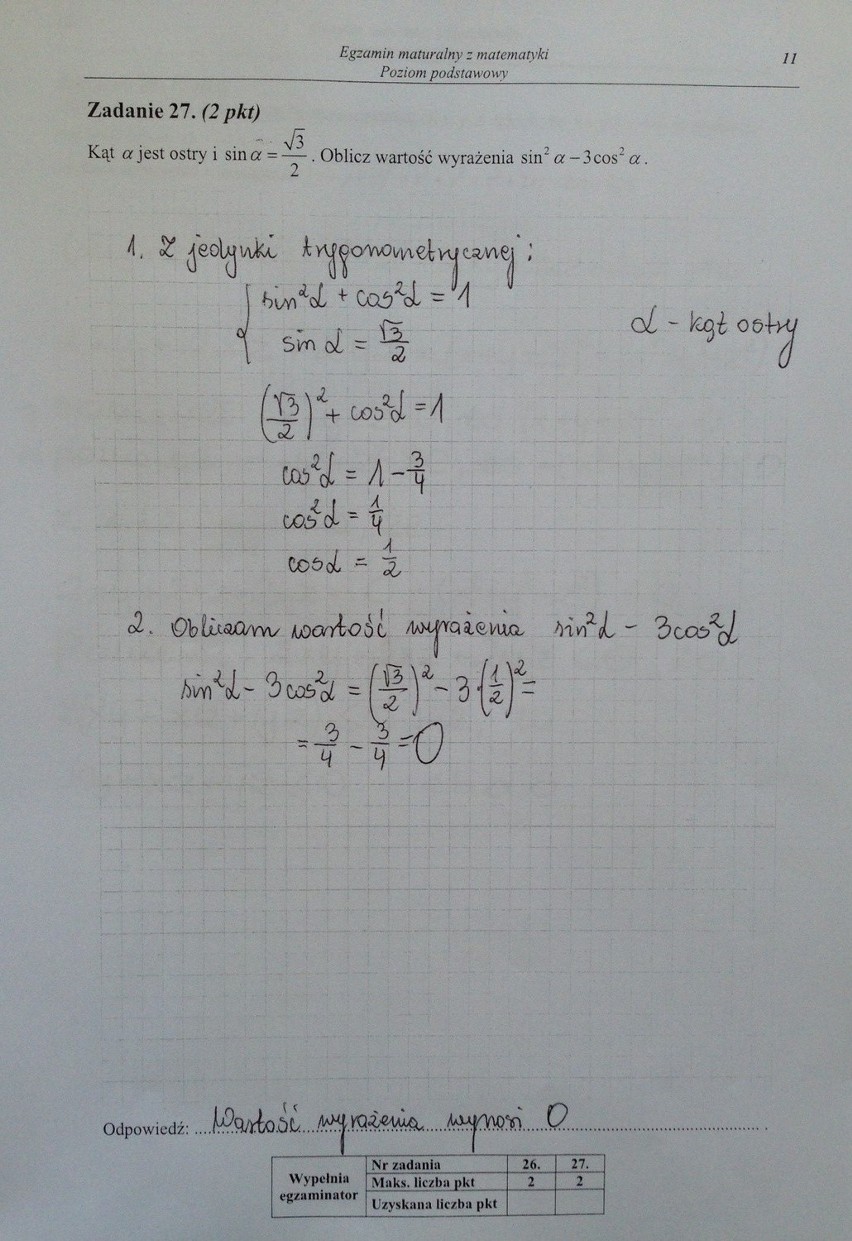 Egzamin maturalny z matematyki 11
Poziom podstawowy
Zadanie 27. (2 pkt)
Kąt α jest ostry i sin α = √3/2 . Oblicz wartość wyrażenia sin² α − 3cos² α .
1. Z jedynki trygonometrycznej :
{ sin²α + cos²α = 1
sin α = √3/2
α - kąt ostry
(√3/2)² + cos²α = 1
cos²α = 1 - 3/4
cos²α = 1/4
cosα = 1/2
2. Obliczam wartość wyrażenia sin²α - 3cos²α
sin²α - 3cos²α = (√3/2)² - 3·(1/2)² =
= 3/4 - 3/4 = 0
Odpowiedź: Wartość wyrażenia wynosi 0
Wypełnia egzaminator
Nr zadania 26. 27.
Maks. liczba pkt 2 2
Uzyskana liczba pkt